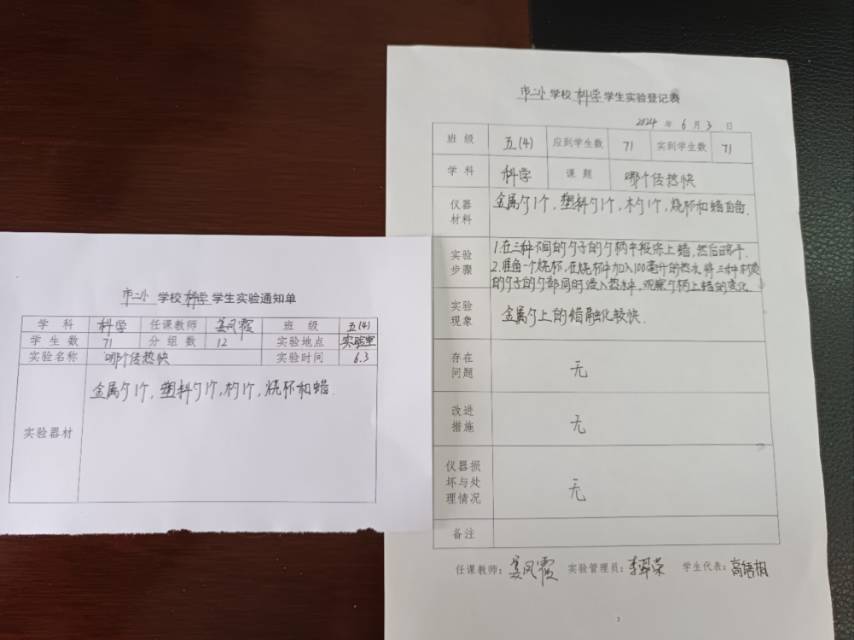 市二小学校科学学生实验通知单
学科 科学 任课教师 姜凤霞 班级 五(4)
学生数 71 分组数 12 实验地点 实验室
实验名称 哪个传热快 实验时间 6.3
实验器材 金属勺1个,塑料勺1个,木勺1个,烧杯和蜡.
市二小学校科学学生实验登记表
2024年6月3日
班级 五(4) 应到学生数 71 实到学生数 71
学科 科学 课题 哪个传热快
仪器
材料
金属勺1个,塑料勺1个,木勺1个,烧杯和蜡
实验
步骤
1.在三种不同的勺子的勺柄中段涂上蜡,然后
2.准备一个烧杯,在烧杯中加入100毫升的热水,将三种材质
的勺子的勺部同时浸入热水,观察勺柄上蜡的变化
实验
现象
金属勺上的蜡融化较快.
存在
问题
无
改进
措施
无
仪器损
坏与处
理情况
无
备注
任课教师:姜凤霞 实验管理员:李翠荣 学生代表:高梧桐